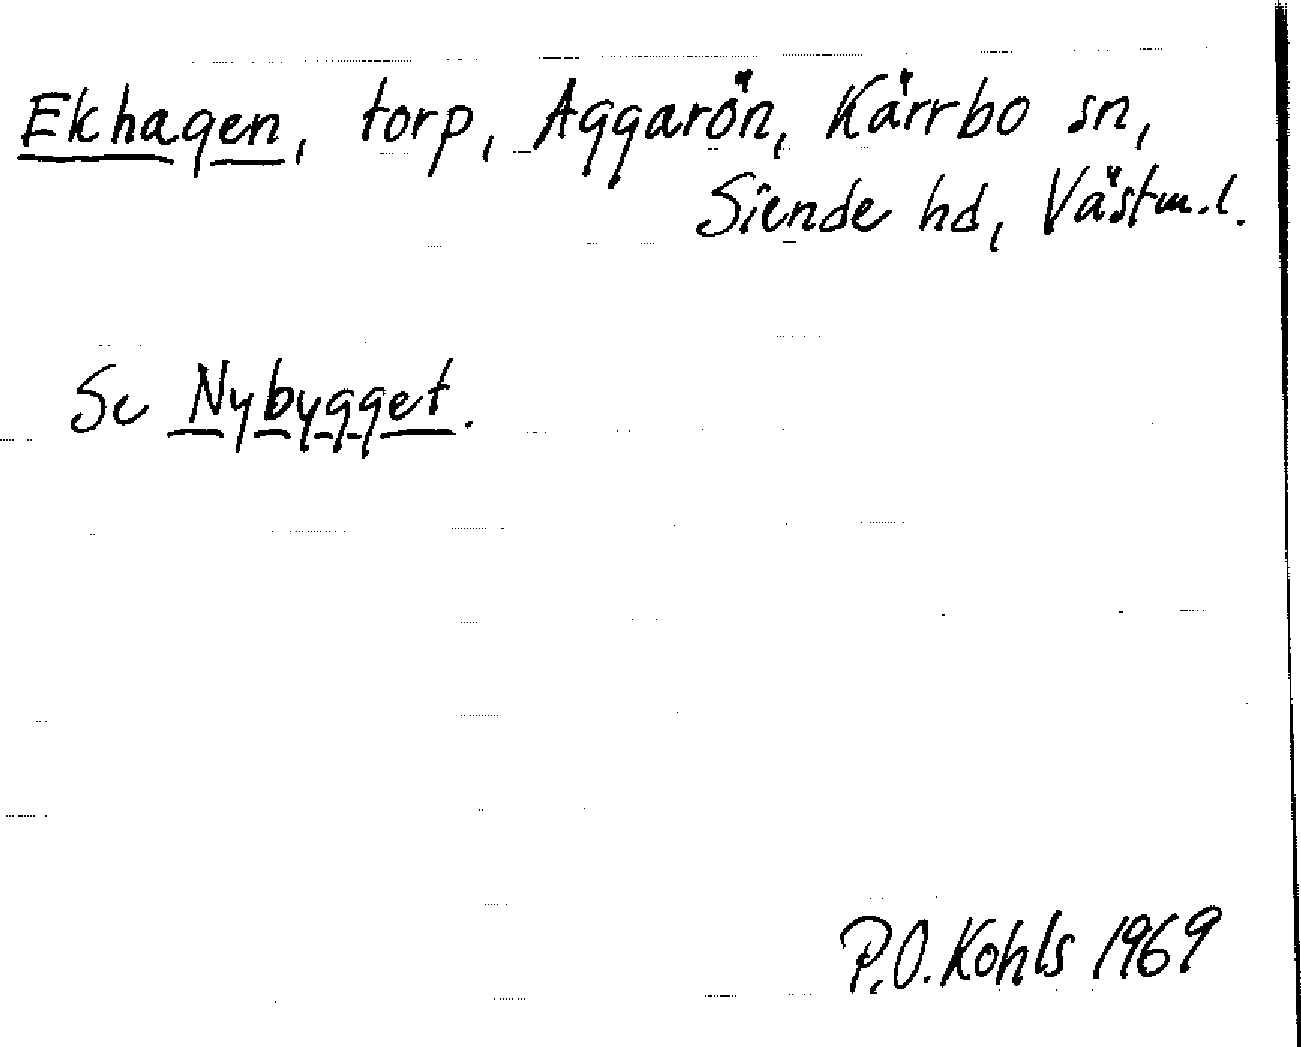 Ekhagen, torp, Aggarön, Kärrbo sn,
Siende hd, Västm.l.
Se Nybygget.
P.O. Kohls 1969